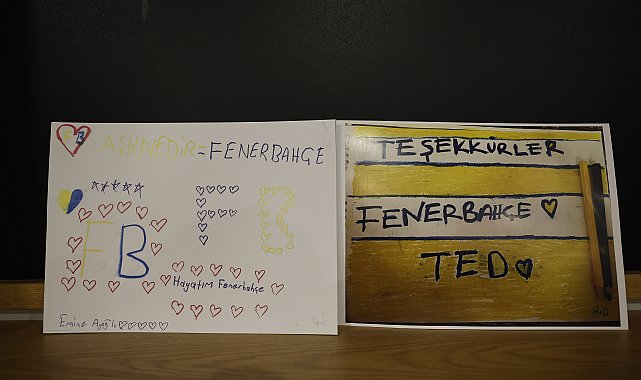 FB
AŞKNEDİR-FENERBAHÇE
FB
FB
Hayatım Fenerbahçe
Emine
TEŞEKKÜRLER
FENERBAHÇE
TED